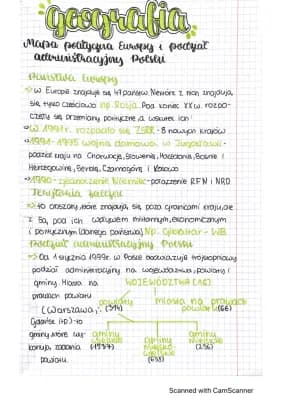 geografia
Mapa polityczna Europy i podział
administracyjny Polski
Państwa Europy
w Europie znajduje się 47 państw Niektóre z nich znajdują
się tylko częściowo np. Rosja. Pod koniec XX w. rozpo-
częły się przemiany polityczne a wskutek ich
W 1991r. rozpadło się ZSRR - 8 nowych krajów
1991-1995 wojna domowa w Jugosławii -
podział kraju na Chorwację, Słowenię, Macedonię, Bośnię i
Hercegowinę, Serbię, Czarnogórę i Kosowo
1990 - zjednoczenie Niemiec - połączenie RFN i NRD
Terytoria zależne
to obszary, które znajdują się poza granicami kraju, ale
z są pod ich wpływem militarnym, ekonomicznym
i politycznym (danego państwa) Np. Gibraltar - WB
Podział administracyjny Polski
Od 1 stycznia 1999r. w Polsce obowiązuje trójstopniowy
podział administracyjny na województwa, powiaty i
gminy. Miasta na WOJEWÓDZTWA (16)
prawach powiatu
powiaty (314) miasta na prawach powiatu (66)
(Warszawa,
Gdańsk itp.) - to
gminy, które wy-
konują zadania
powiatu.
gminy wiejskie (1537)
gminy miejsko-wiejskie (638)
gminy miejskie (236)
Scanned with CamScanner